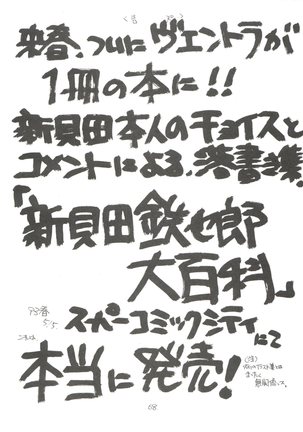 来春、ついにヴェントラが
1冊の本に!!
新貝田本人のチョイスと
コメントによる、落書き集。
「新貝田鉄也郎
大百科」
5/5.
スーパーコミックシティ
にて
本当に発売!
(注)
68